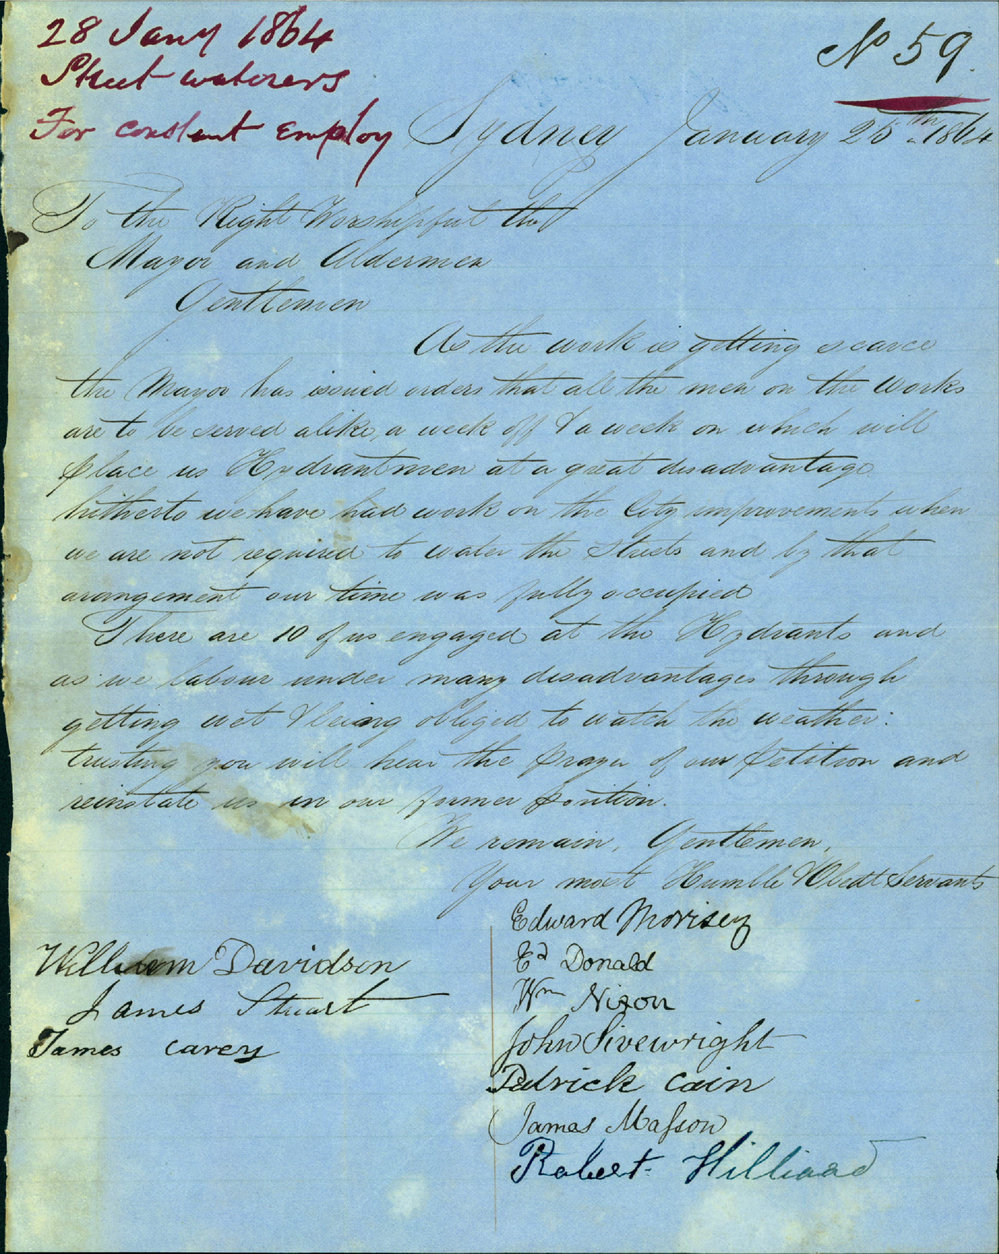 28 Jany 1864
Street waterers
For constant employ
No 59.
Sydney January 26th 1864
To the Right Worshipful the
Mayor and Aldermen
Gentlemen
As the work is getting scarce
the Mayor has issued orders that all the men on the works
are to be served alike, a week off & a week on which will
place us Hydrantmen at a great disadvantage
hitherto we have had work on the City improvements when
we are not required to water the Streets and by that
arangement our time was fully occupied
There are 10 of us engaged at the Hydrants and
as we labour under many disadvantages through
getting wet & being obliged to watch the weather:
trusting you will hear the prayer of our Petition and
reinstate us in our former position.
We remain, Gentlemen,
Your most Humble & Obedt Servants
Edward Morisey
Ed Donald
Wm Nixon
John Sivewright
Patrick Cain
James Masson
Robert Hilliard
William Davidson
James Stuart
James Carey